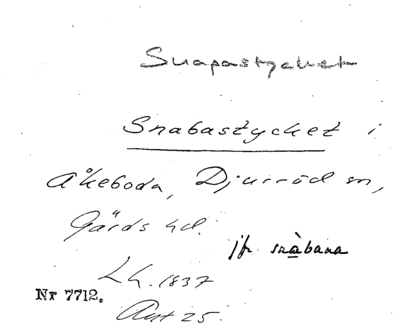 Snapastycket
Snabastycket i
Åkeboda, Djurröd sn,
Gärds hd.
jfr snàbana
Lh. 1837
Nr 7712.
Akt 25.